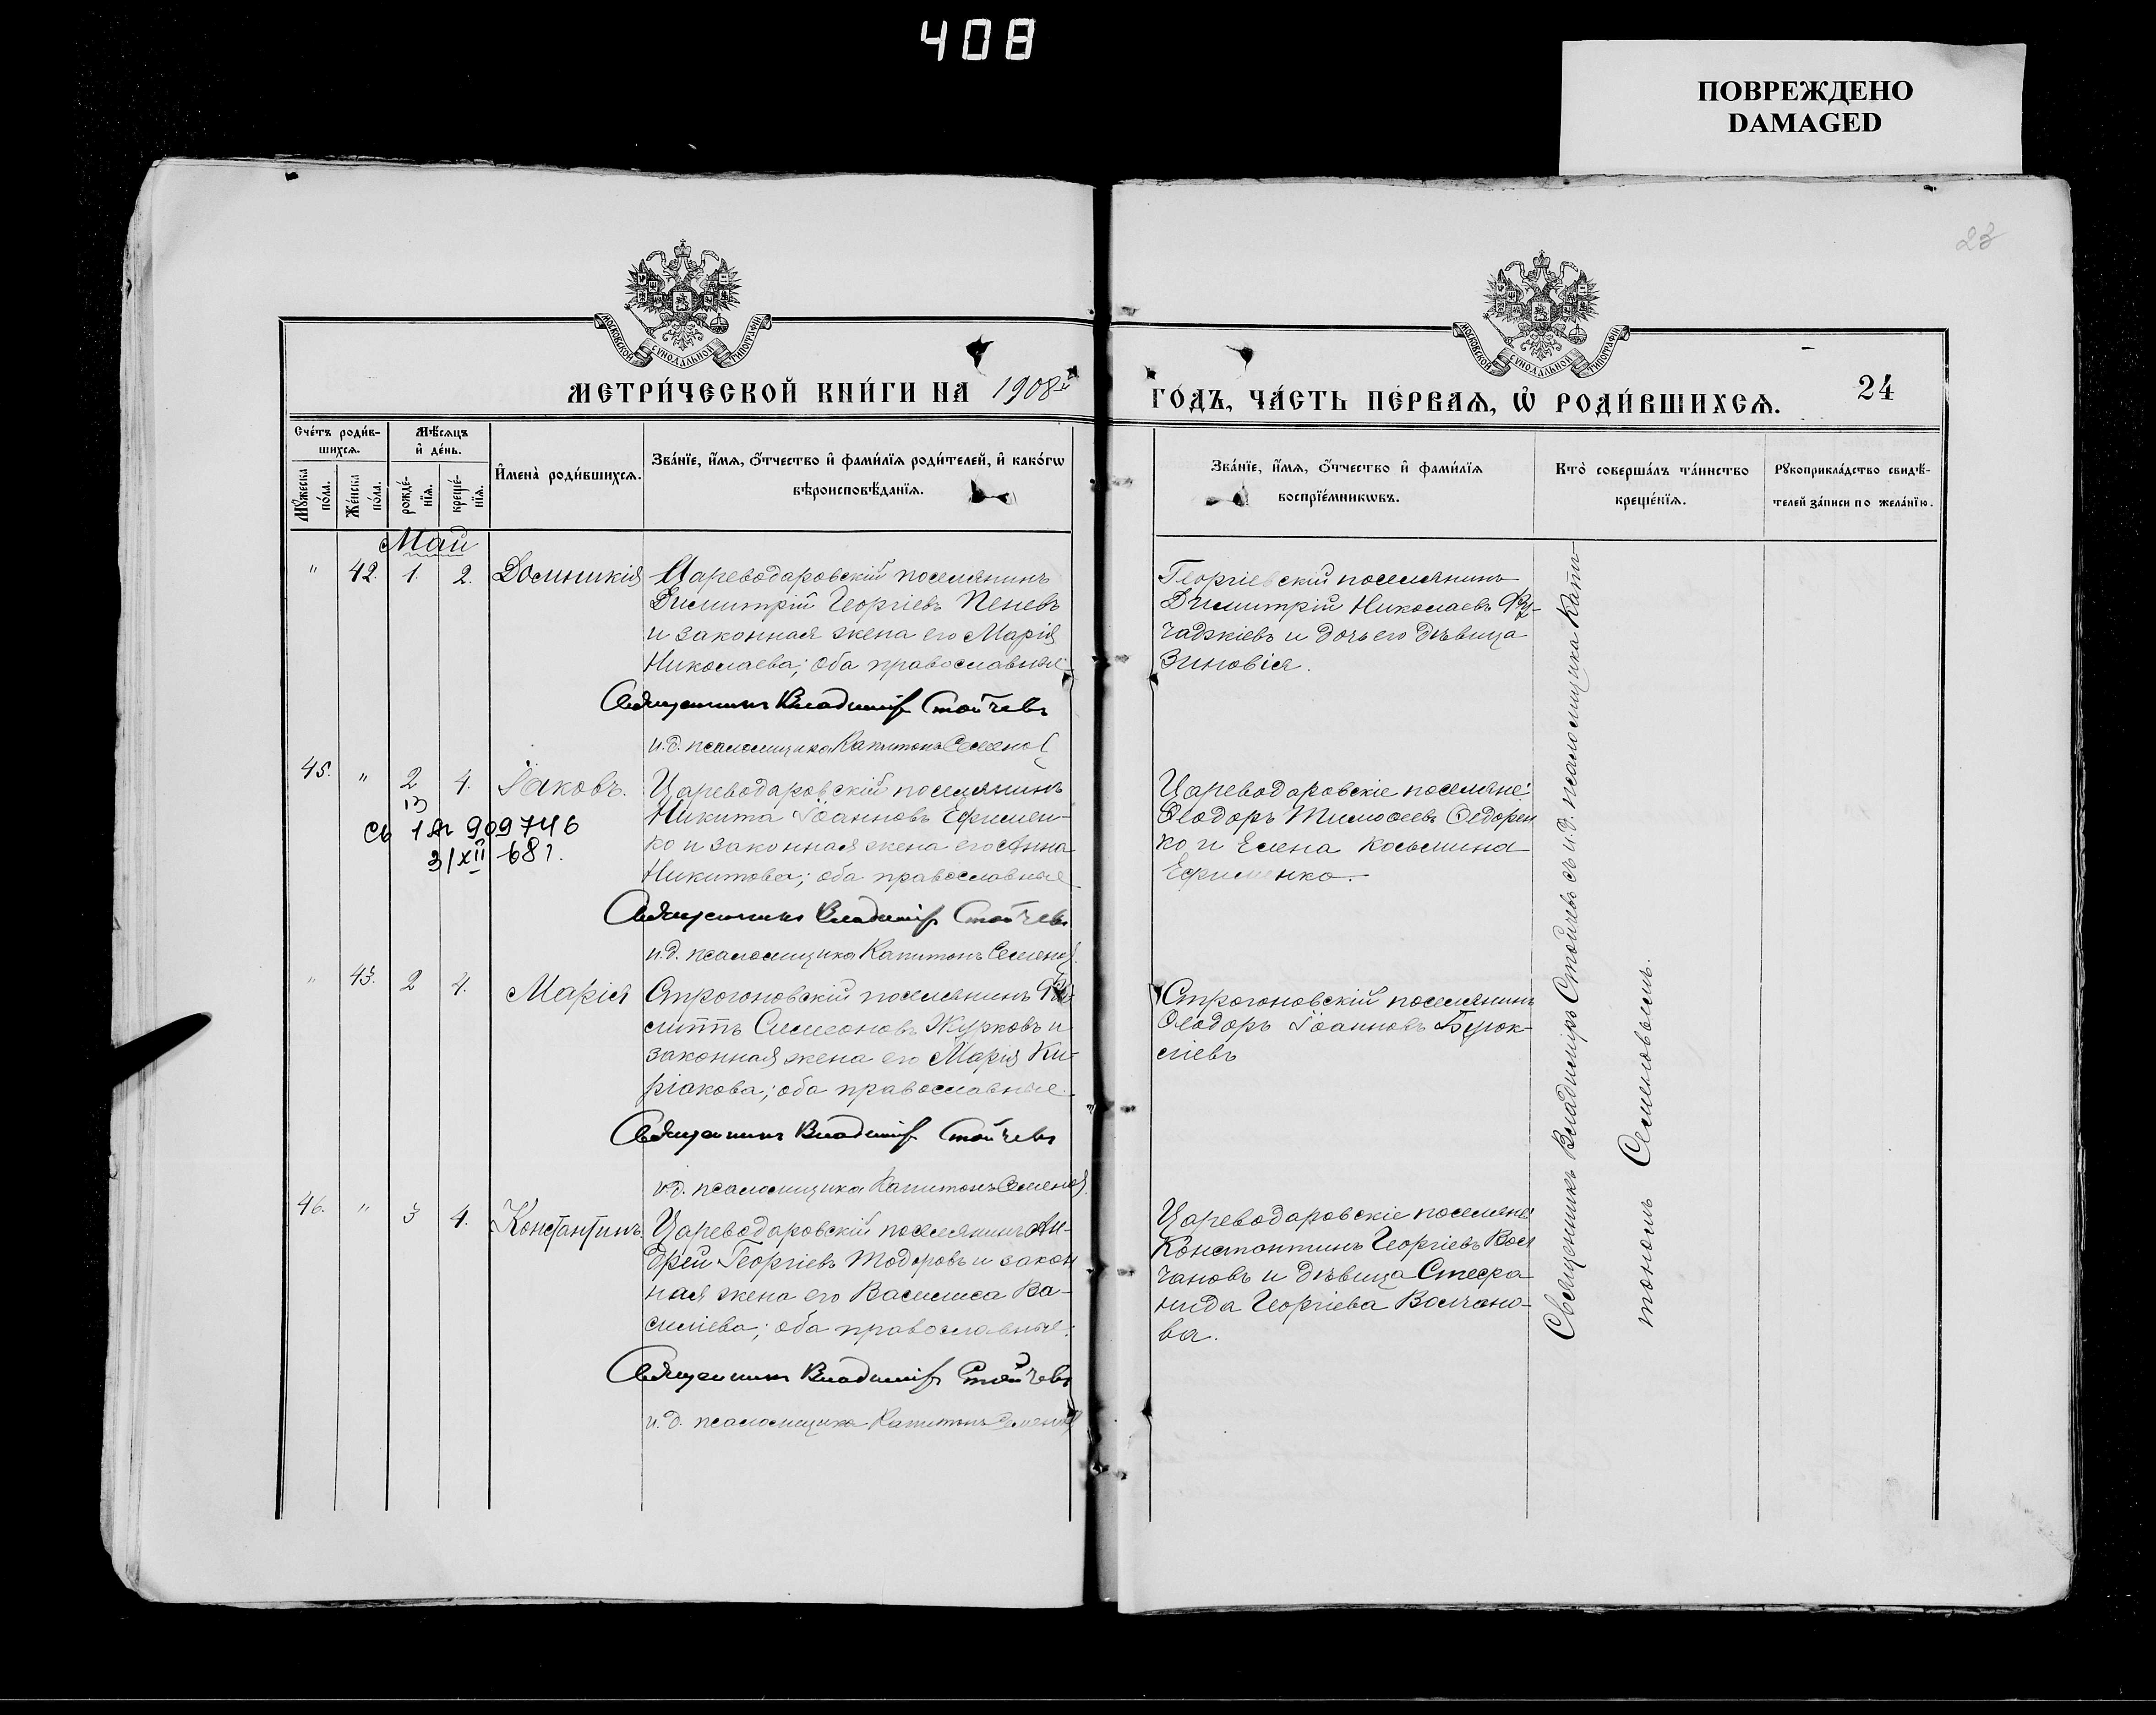 408
ПОВРЕЖДЕНО
DAMAGED
23
МОСКОВСКОЙ СѴНОДАЛЬНОЙ ТИПОГРАФІИ
МОСКОВСКОЙ СѴНОДАЛЬНОЙ ТИПОГРАФІИ
МЕТРИ́ЧЕСКОЙ КНИ́ГИ НА 1908й
ГО́ДЪ, ЧА́СТЬ ПЕ́РВАѦ, Ѡ҆ РОДИ́ВШИХСѦ. 24
Сче́тъ роди́в-
шихсѧ.
Мꙋ́жеска по́ла.
Же́нска по́ла.
Мѣ́сѧцъ
и҆ де́нь.
рожде́-
нїѧ.
креще́-
нїѧ.
И҆мена̀ роди́вшихсѧ.
Зва́нїе, и҆́мѧ, ѻ҆́тчество и҆ фами́лїѧ роди́телей, и҆ како́гѡ
вѣроисповѣ́данїѧ.
Зва́нїе, и҆́мѧ, ѻ҆́тчество и҆ фами́лїѧ
воспрїе́мникѡвъ.
Кто̀ соверша́лъ та́инство
креще́нїѧ.
Рꙋкоприкла́дство свидѣ́-
телей за́писи по жела́нїю.
Май
" 42. 1. 2. Домникія Цареводаровскій поселянинъ
Димитрій Георгіевъ Пеневъ
и законная жена его Марія
Николаева; оба православные
Священникъ Владиміръ Стойчевъ
и.д. псаломщика Капитонъ Семенов
Георгіевскій поселянинъ
Димитрій Николаевъ
чаджіевъ и дочь его дѣвица
Зиновія.
45. " 2 4. Іаковъ. Цареводаровскій поселянинъ
Никита Іоанновъ Ефимен-
ко и законная жена его Анна
Никитова; оба православные
13
св 1 909746
3/XII-68 г.
Священникъ Владиміръ Стойчевъ
и.д. псаломщика Капитонъ Семенов
Цареводаровскіе поселяне:
Ѳеодоръ Тимоѳеевъ Ѳедорен
ко и Елена Косьмина
Ефименко.
" 43. 2 4. Марія Строгоновскій поселянинъ Фи-
липпъ Симеоновъ Журковъ и
законная жена его Марія Ки-
ріакова; оба православные.
Священникъ Владиміръ Стойчевъ
и.д. псаломщика Капитонъ Семенов
Строгоновскій поселянинъ
Ѳеодоръ Іоанновъ Бурюк-
ліевъ
46. " 3 4. Константинъ. Цареводаровскій поселянинъ Ан-
дрей Георгіевъ Тодоровъ и закон
ная жена его Василиса Ва-
силіева; оба православные.
Священникъ Владиміръ Стойчевъ
и.д. псаломщика Капитонъ Семенов
Цареводаровскіе поселяне
Константинъ Георгіевъ Вол
чановъ и дѣвица Стефа
нида Георгіева Волчано-
ва.
Священникъ Владиміръ Стойчевъ съ и.д. псаломщика Капи-
тономъ Семеновымъ.